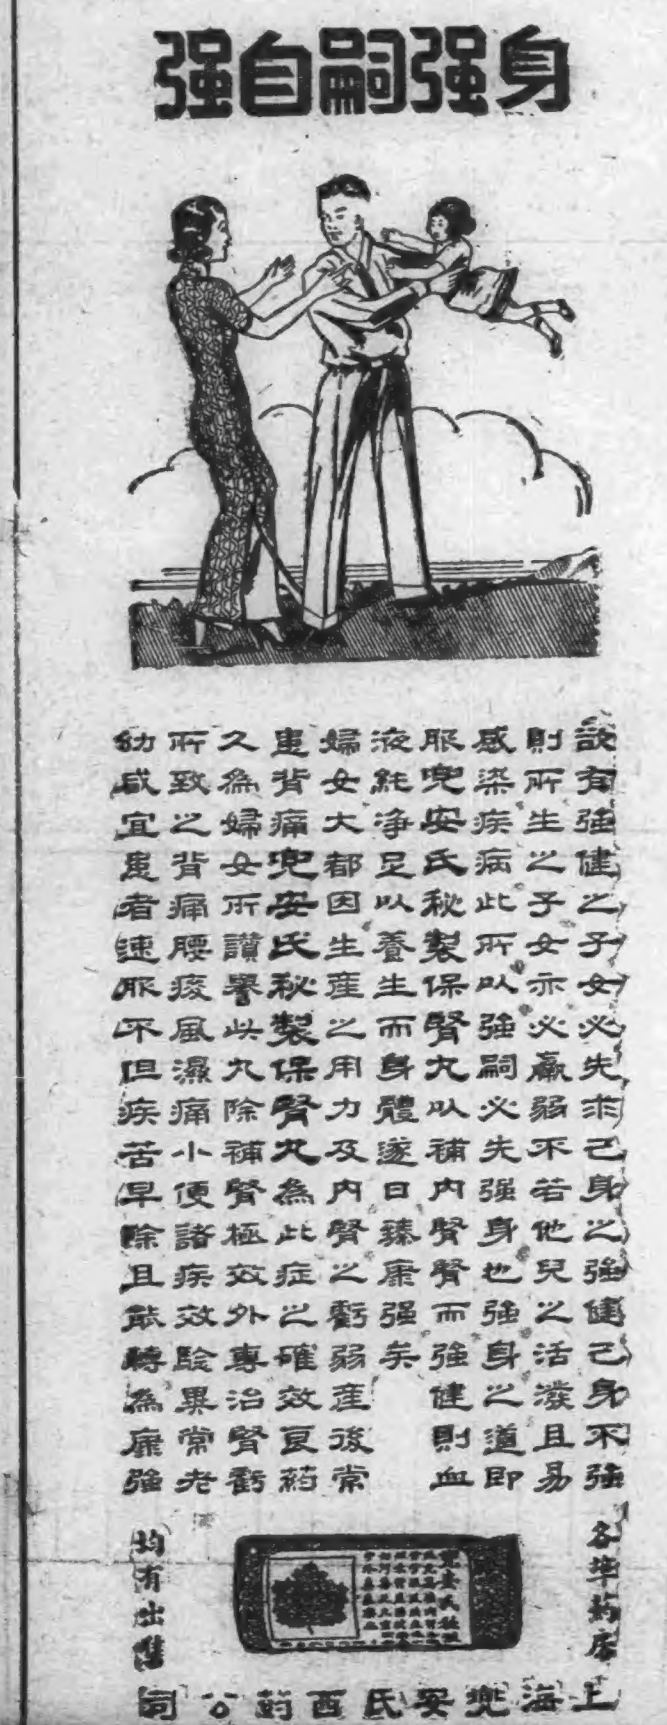 身强嗣自强
欲有強健之子女必先求己身之強健己身不強
則所生之子女亦必羸弱不若他兒之活潑且易
感染疾病此所以強嗣必先強身也強身之道即
服兜安氏秘製保腎丸以補內腎腎而強健則血
液純净足以養生而身體遂日臻康强矣
婦女大都因生產之用力及內腎之虧弱產後常
患背痛兜安氏秘製保腎丸為此症之確效良药
久為婦女所讚譽此丸除補腎極效外專治腎虧
所致之背痛腰痠風濕痛小便諸疾效驗異常老
幼咸宜患者速服不但疾苦早除且能轉為康強
各華药房
均有出售
上海兜安氏西药公司